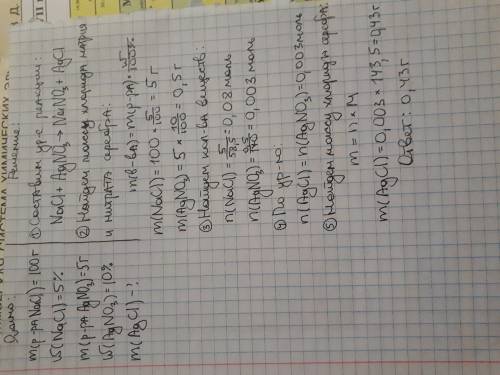 Дано:
m(р-ра NaCl) = 100г
ω(NaCl) = 5%
m(р-ра AgNO₃) = 5г
ω(AgNO₃) = 10%
m(AgCl) - ?
Решение:
① Составим ур-е реакции:
NaCl + AgNO₃ → NaNO₃ + AgCl
② Найдем массу хлорида натрия
и нитрата серебра:
m(в-ва) = m(р-ра) × ω/100%
m(NaCl) = 100 × 5/100 = 5г
m(AgNO₃) = 5 × 10/100 = 0,5г
③ Найдем кол-ва веществ:
n(NaCl) = 5/58,5 = 0,08 моль
n(AgNO₃) = 0,5/170 = 0,003 моль
④ По ур-ю:
n(AgCl) = n(AgNO₃) = 0,003 моль
⑤ Найдем массу хлорида серебра:
m = n × M
m(AgCl) = 0,003 × 143,5 = 0,43г
Ответ: 0,43г